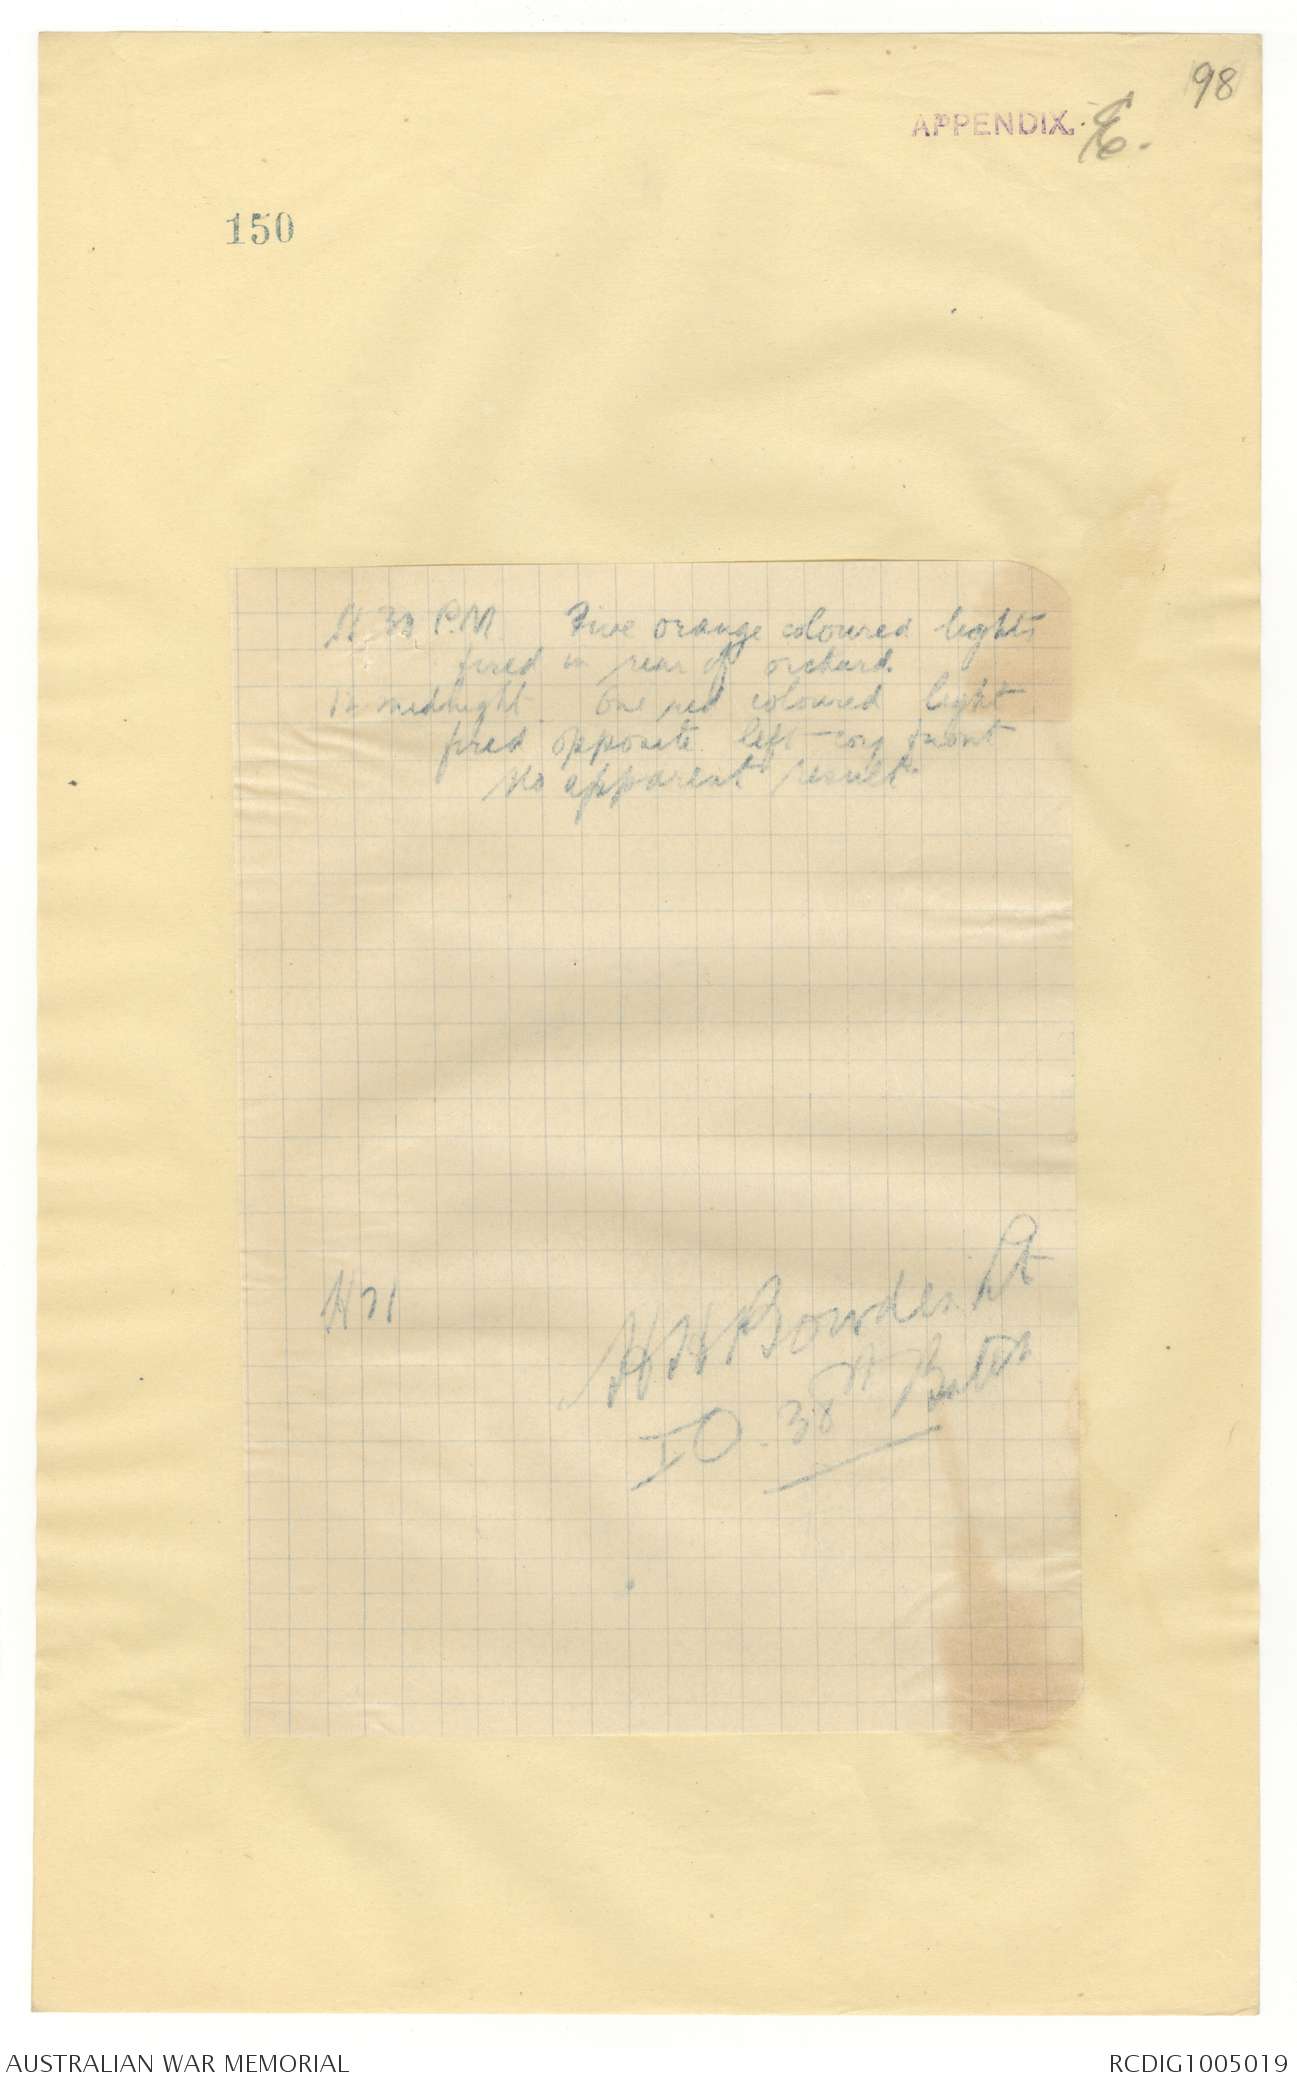 98
APPENDIX. E.
150
11.30 P.M Five orange coloured lights
fired in rear of orchard.
12 midnight. One red coloured light
fired opposite left coy front
No apparent result.
H H Bowden Lt
IO. 38th Battn
AUSTRALIAN WAR MEMORIAL
RCDIG1005019